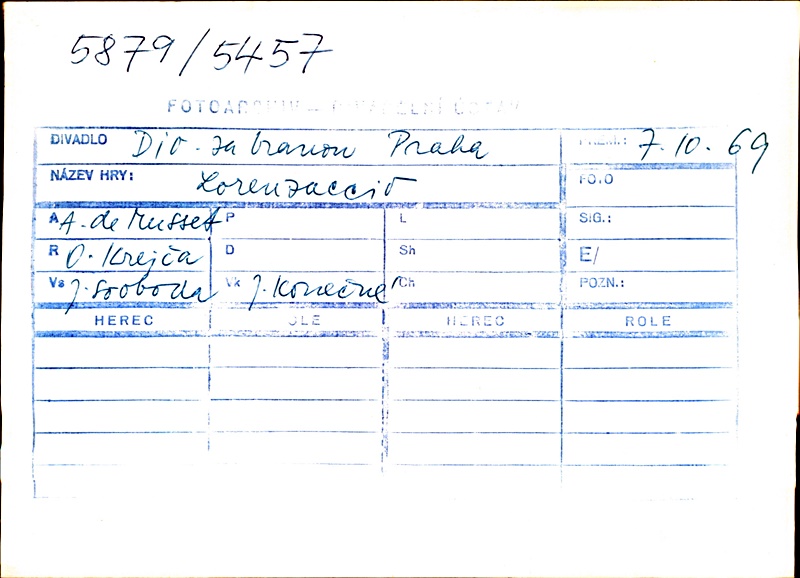 5879/5457
FOTOARCHIV – DIVADELNÍ ÚSTAV
DIVADLO Div. za branou Praha PREM.: 7.10.69
NÁZEV HRY: Lorenzaccio FOTO
A A. de Musset P L SIG.:
R O. Krejča D Sh E/
Vs J. Svoboda Vk J. Konečné Ch POZN.:
HEREC ROLE HEREC ROLE